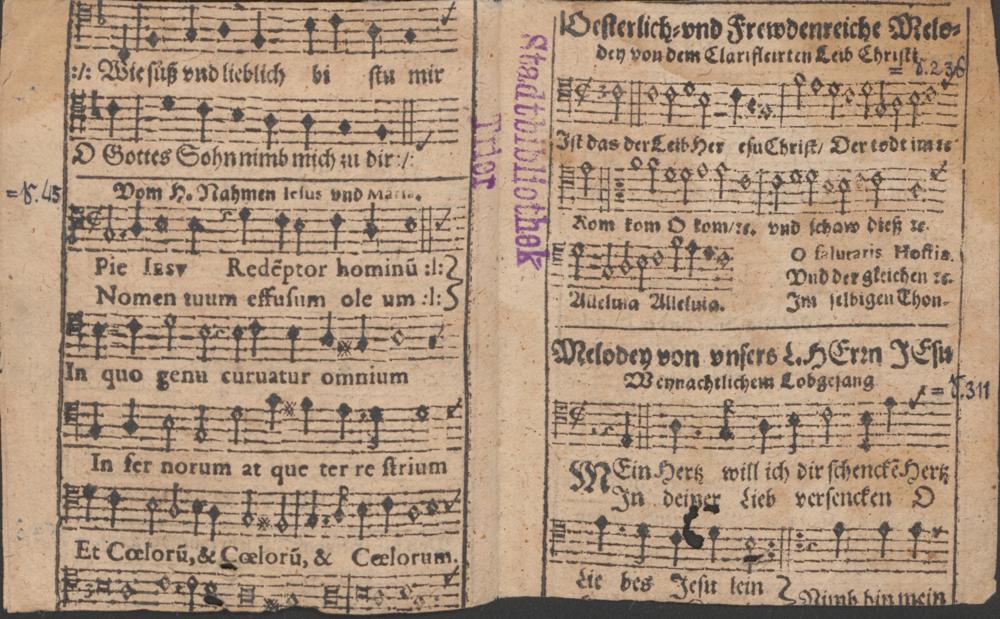 :/: Wie süß vnd lieblich bi stu mir
O Gottes Sohn nimb mich zu dir :/:
= V. 45
Vom H. Nahmen Iesus vnd Mariæ.
Pie Iesv Redẽptor hominũ :l:
Nomen tuum effusum ole um :l:
In quo genu curuatur omnium
In fer norum at que ter re strium
Et Cœlorũ, & Cœlorũ, & Cœlorum.
Stadtbibliothek
Trier
Oesterlich-vnd Frewdenreiche Melo-
dey von dem Clarificirten Leib Christi.
= V. 236
Ist das der Leib Her esu Christ/ Der todt im ꝛc
Kom kom O kom/ꝛc. vnd schaw dieß ꝛc.
O salutaris Hostia.
Vnd der gleichen ꝛc.
Alleluia Alleluia. Im selbigen Thon.
Melodey von vnsers L. HErrn JEsu
Weynachtlichem Lobgesang
= V. 311
MEin Hertz will ich dir schenckẽ Hertz
In deiner Lieb versencken O
Lie bes Jesu lein
Nimb hin mein